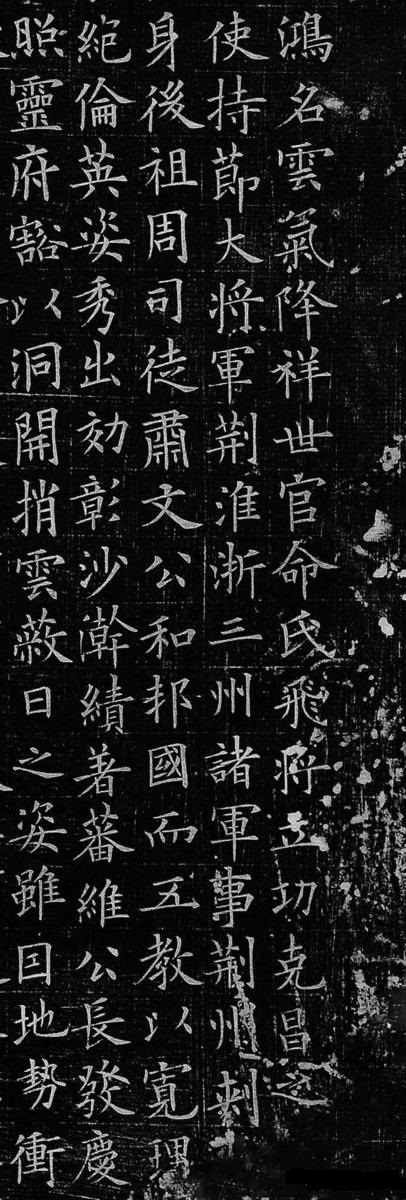 鴻名雲氣降祥世官命氏飛將立功克昌之
使持莭大將軍荆淮浙三州諸軍事荆州刺
身後祖周司徒肅文公和邦國而五教以寛理
絶倫英姿秀出効彰沙澣績著蕃維公長發慶
照靈府豁以洞開捎雲蔽日之姿雖因地勢衝